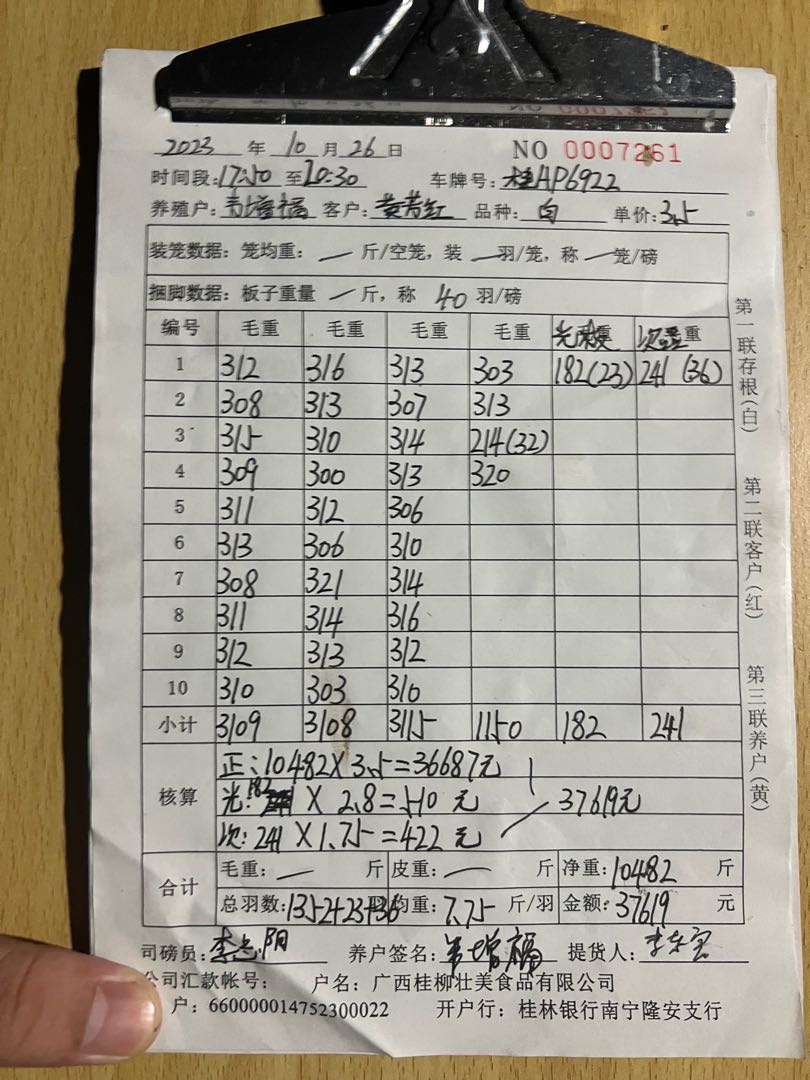 2023 年 10 月 26 日 NO 0007261
时间段:17:50 至20:30 车牌号:桂AP6922
养殖户:韦增福 客户:黄芳红 品种:白 单价:3.5
装笼数据:笼均重:一 斤/空笼,装 一羽/笼,称 一笼/磅
捆脚数据:板子重量 一斤,称 40 羽/磅
编号 毛重 毛重 毛重 毛重 光 重 次 重
1 312 316 313 303 182(23) 241 (36)
2 308 313 307 313
3 315 310 314 214(32)
4 309 300 313 320
5 311 312 306
6 313 306 310
7 308 321 314
8 311 314 316
9 312 313 312
10 310 303 310
小计 3109 3108 3115 1150 182 241
核算 正:10482×3.5=36687元
光:182 × 2.8=510 元 37619元
次:241 ×1.75=422 元
合计 毛重:一 斤 皮重:一 斤 净重:10482 斤
总羽数:1352+23+36 均重:7.75 斤/羽 金额:37619 元
司磅员:李 阳 养户签名:韦增福 提货人:李
公司汇款帐号: 户名:广西桂柳壮美食品有限公司
户:660000014752300022 开户行:桂林银行南宁隆安支行
第一联存根(白) 第二联客户(红) 第三联养户(黄)